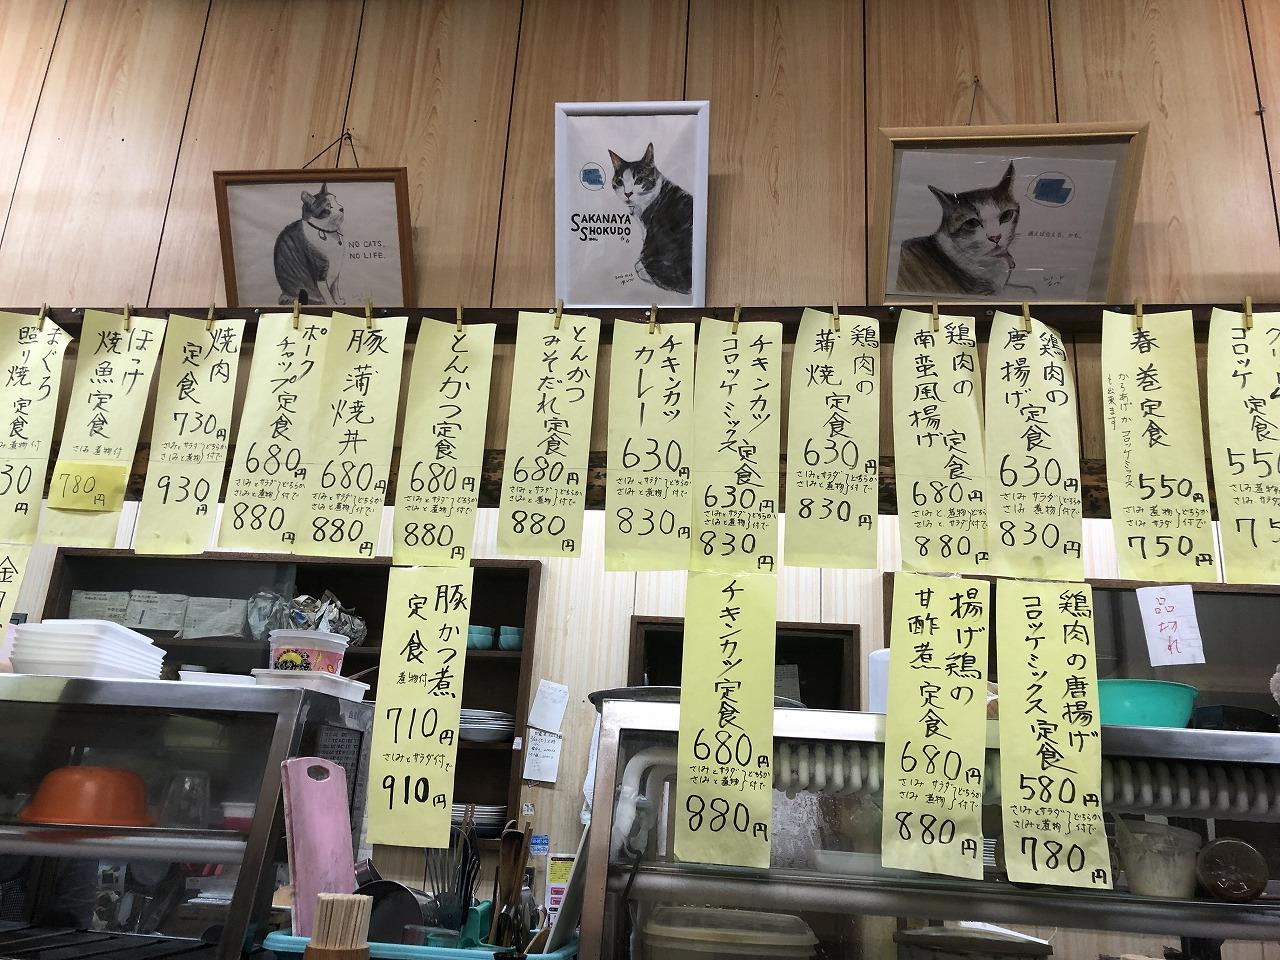 NO CATS,
NO LIFE.
SAKANAYA
SHOKUDO
まぐろ
照り焼 定食
30
円
ほっけ
焼魚定食
さみ 煮物付
780
円
焼肉
定食
730円
さしみとサラダ どちらか
さしみと煮物 付で
930
円
ポーク
チャップ定食
680円
さしみとサラダ どちらか
さしみと煮物 付で
880
円
豚 蒲焼丼
680円
さしみとサラダ どちらか
さしみと煮物 付で
880
円
とんかつ定食
680円
さしみとサラダ どちらか
さしみと煮物 付で
880
円
とんかつ
みそだれ定食
680円
さしみとサラダ どちらか
さしみと煮物 付で
880
円
チキンカツ
カレー
630
円
さしみとサラダ どちらか
さしみと煮物 付で
830
円
チキンカツ
コロッケミックス定食
630円
さしみとサラダ どちらか
さしみと煮物 付で
830
円
鶏肉の
蒲焼 定食
630円
さしみとサラダ どちらか
さしみと煮物 付で
830
円
鶏肉の
南蛮風揚げ 定食
680円
さしみと煮物 どちらか
さしみとサラダ 付で
880
円
鶏肉の
唐揚げ定食
630円
さしみとサラダ どちらか
さしみと煮物 付で
830
円
春巻定食
からあげか コロッケミックス
も出来ます
550円
さしみと煮物 どちらか
さしみとサラダ 付で
750
円
コロッケ 定食
550
豚かつ煮
定食
煮物付
710円
さしみとサラダ付で
910
円
チキンカツ定食
680円
さしみとサラダ どちらか
さしみと煮物 付で
880
円
揚げ鶏の
甘酢煮 定食
680円
さしみとサラダ どちらか
さしみ 煮物 付で
880
円
鶏肉の唐揚げ
コロッケミックス 定食
580円
さしみとサラダ どちらか
さしみと煮物 付で
780
円
品切れ